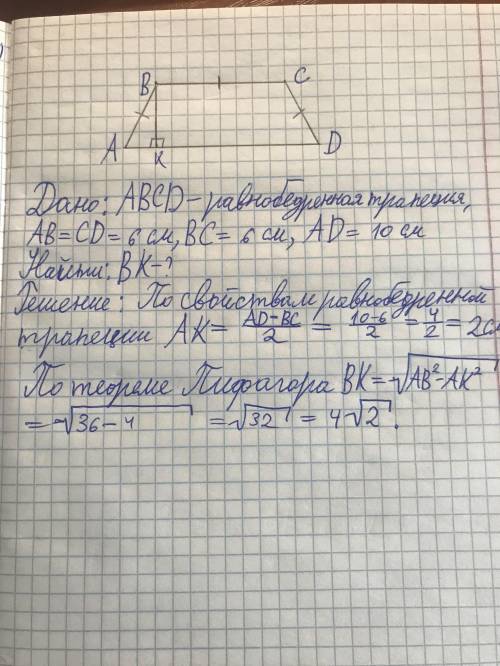 B C
A K D
Дано: ABCD - равнобедренная трапеция,
AB = CD = 6 см, BC = 6 см, AD = 10 см
Найти: BK - ?
Решение: По свойствам равнобедренной
трапеции AK = (AD-BC)/2 = (10-6)/2 = 4/2 = 2см
По теореме Пифагора BK = √(AB²-AK²)
= √(36-4) = √32 = 4√2.